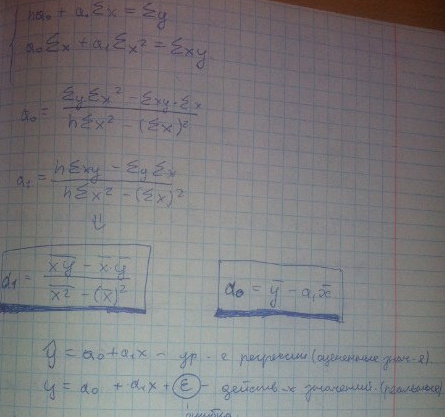 na₀ + a₁Σx = Σy
a₀Σx + a₁Σx² = Σxy
a₀ = (ΣyΣx² − Σxy·Σx) / (nΣx² − (Σx)²)
a₁ = (nΣxy − ΣyΣx) / (nΣx² − (Σx)²)
⇓
a₁ = (x̅y̅ − x̅·y̅) / (x̅²̅ − (x̅)²)
a₀ = y̅ − a₁x̅
ŷ = a₀ + a₁x – ур-е регрессии (оцененные знач-я)
y = a₀ + a₁x + ε – действ-х значений (реальное)
ошибка